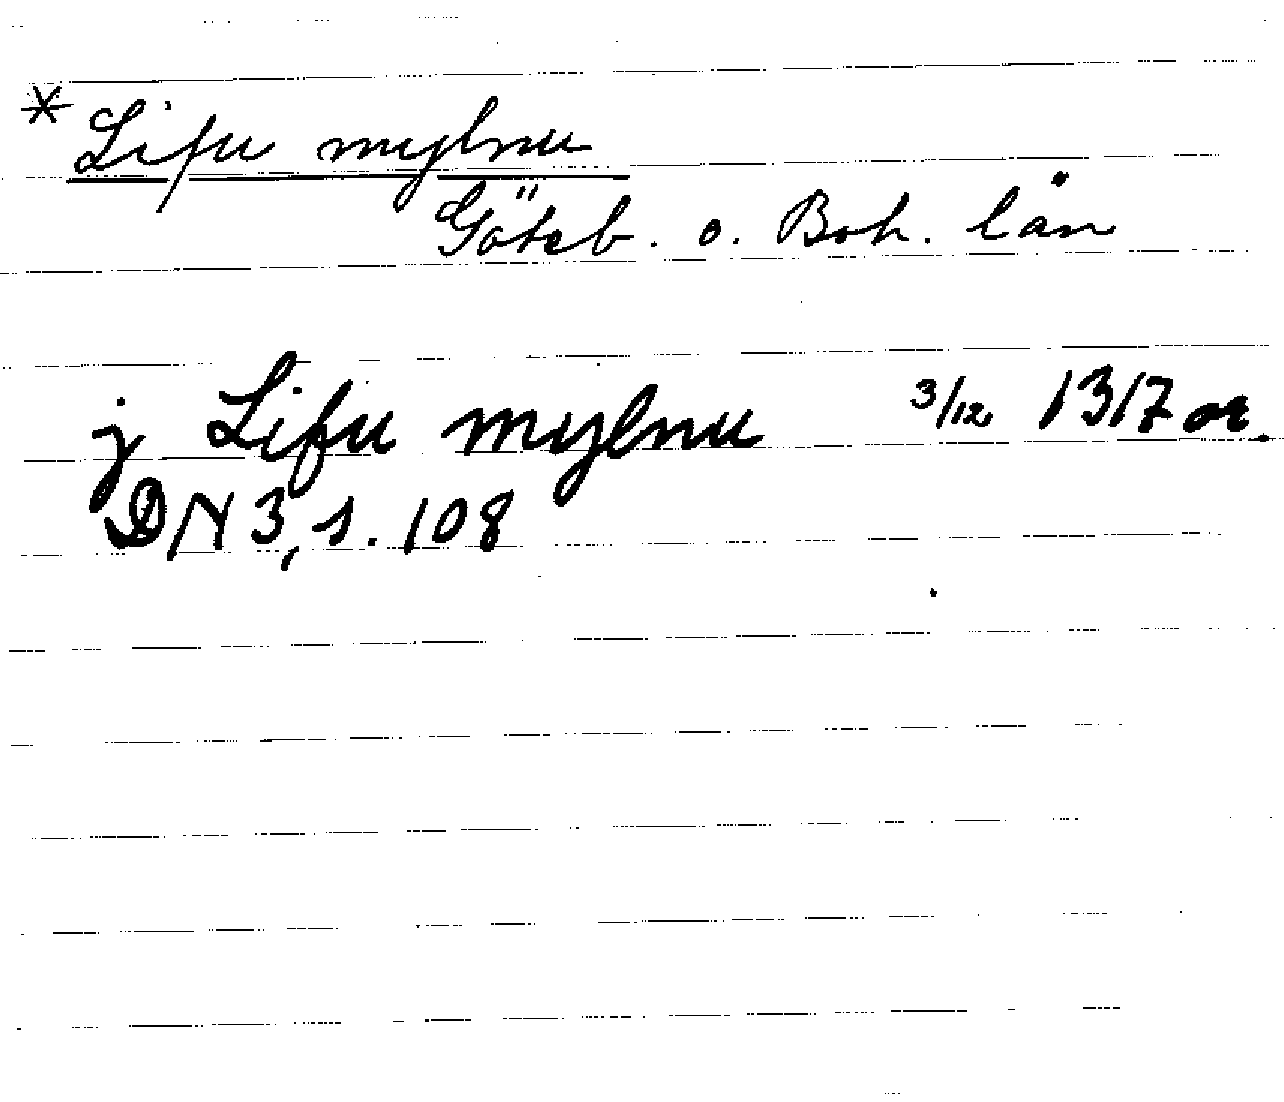 * Lifu mylnu
Göteb. o. Boh. län
j Lifu mylnu 3/12 1317 or.
DN 3, s. 108